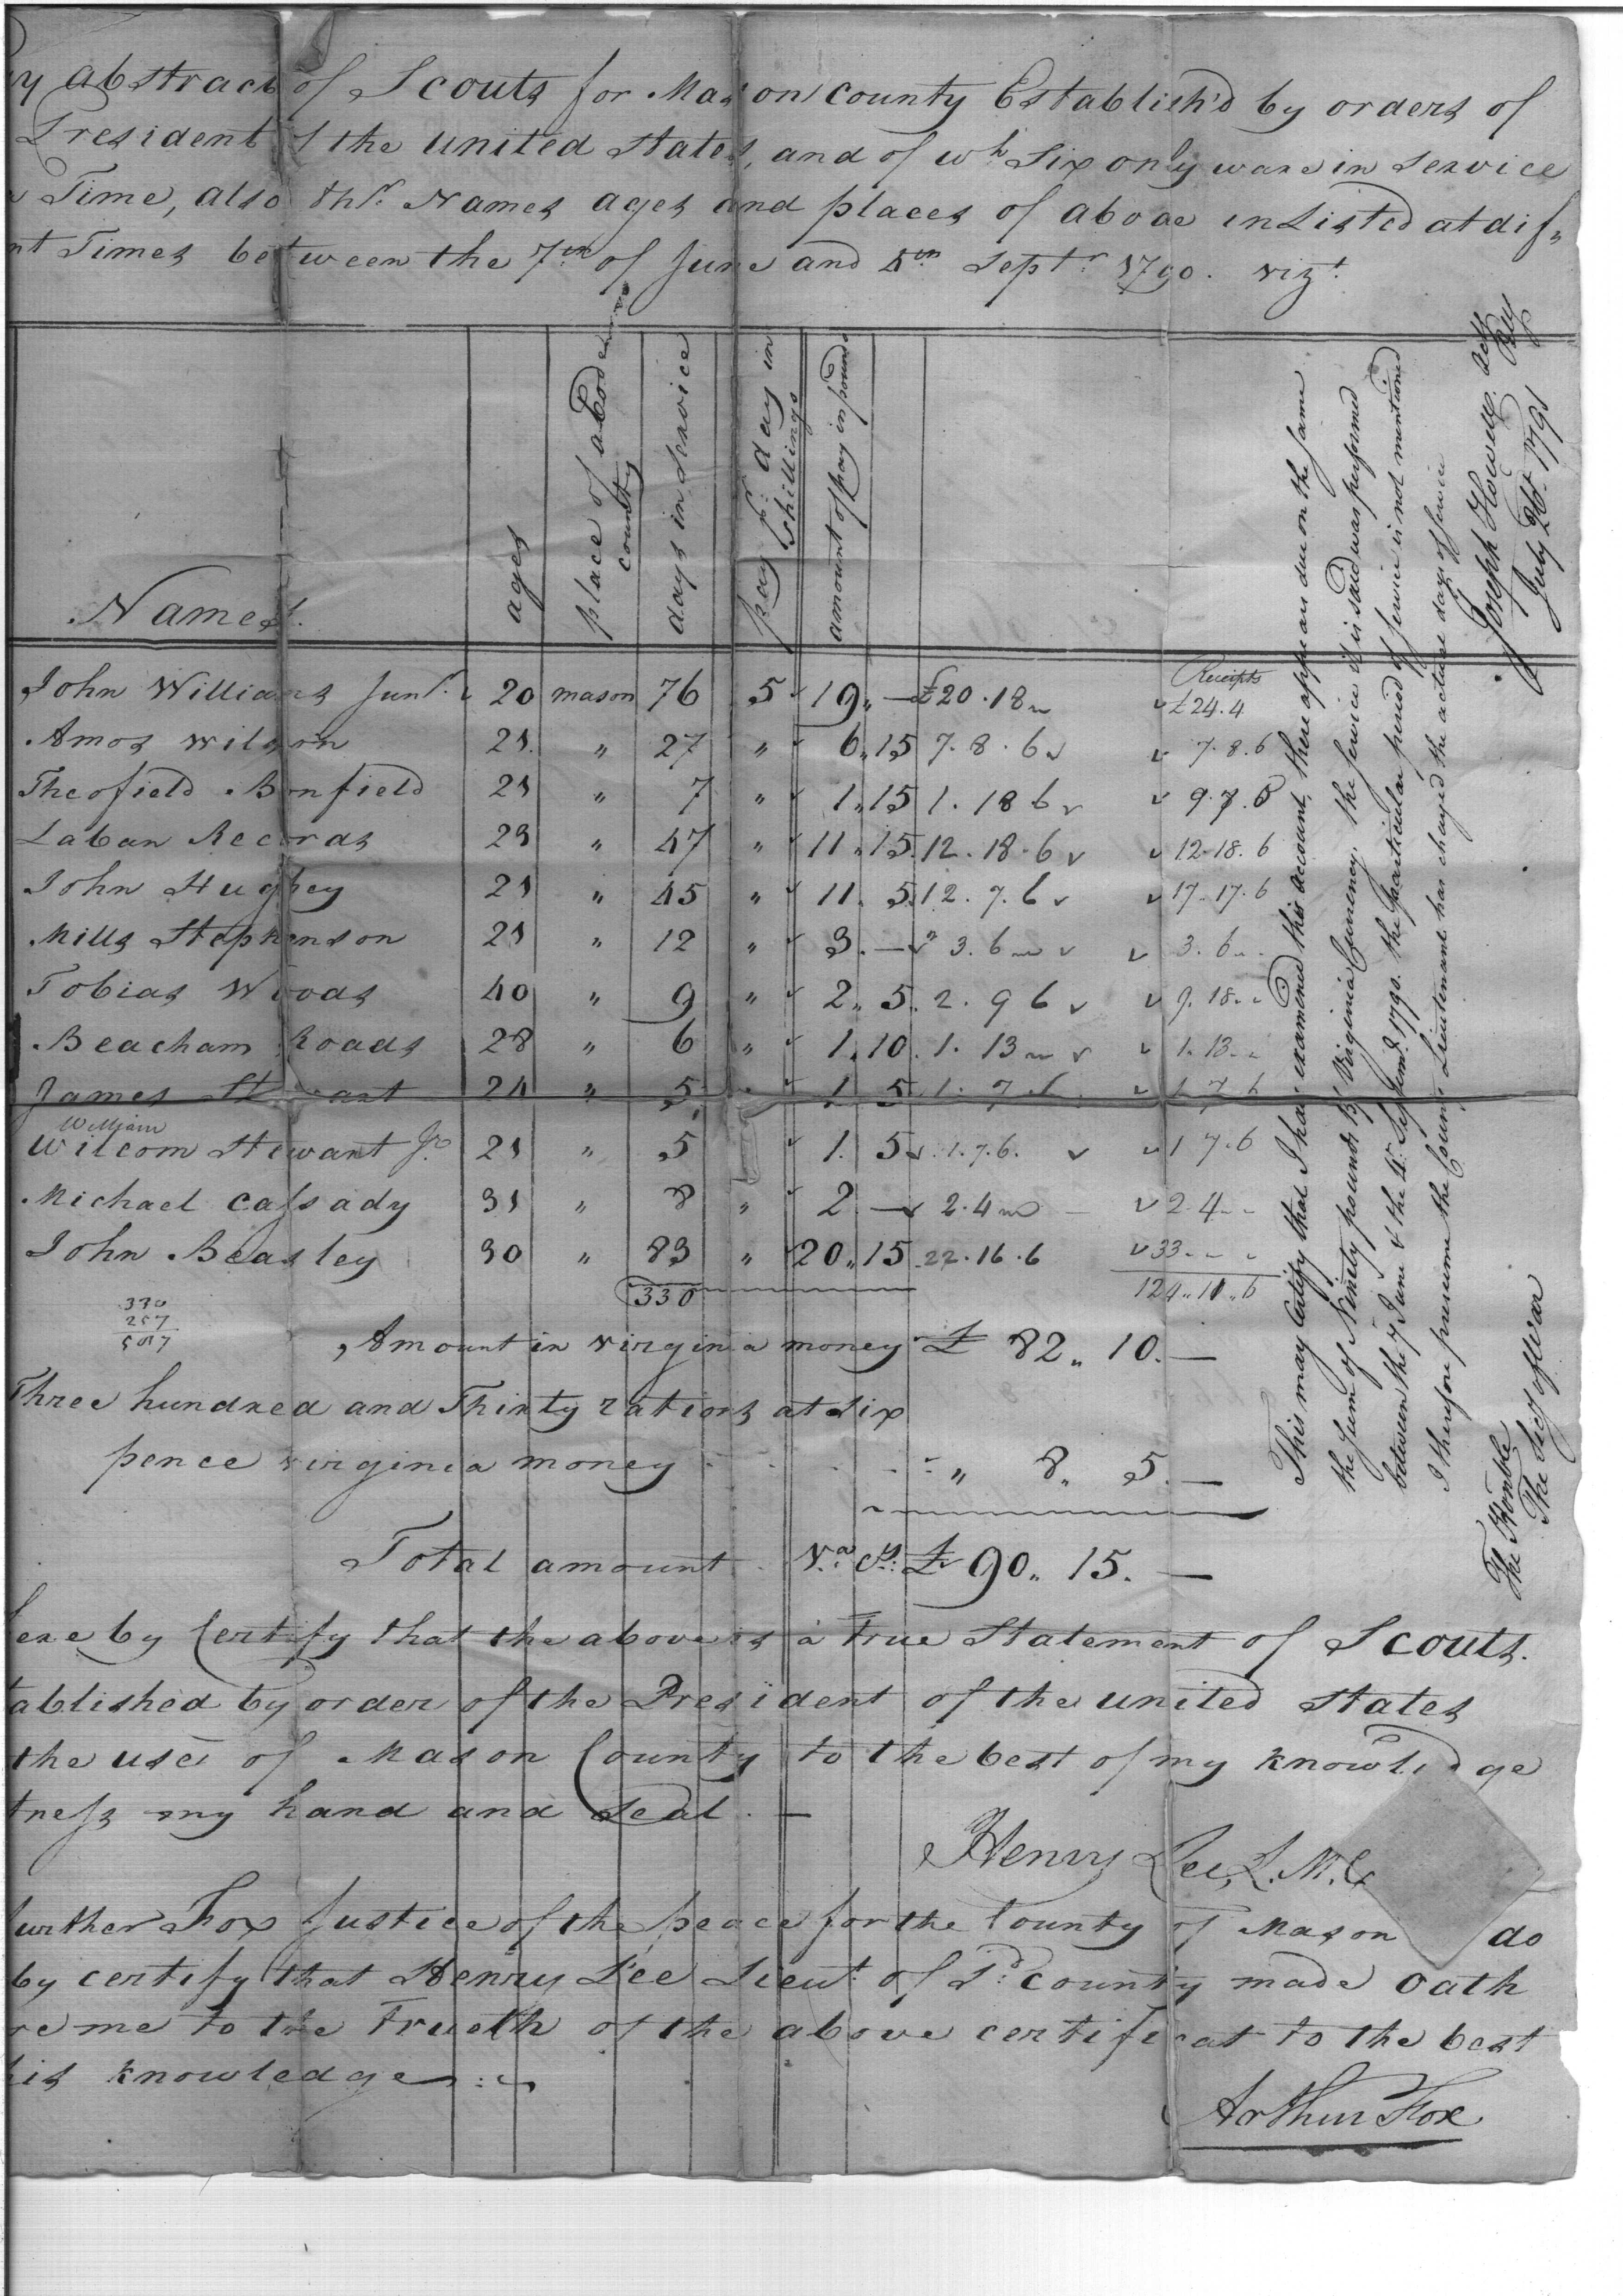 y Abstract of Scouts for Mason County Establish'd by orders of
President of the United States, and of wh Six only ware in Service
Time, also thr Names ages and places of aboae inListed at dif-
nt Times between the 7th of June and 4th Septr 1790. vizt.
Names.
ages
place of abode
county
days in Service
pay pr day in
Shillings
amount of pay in pounds
Receipts
John Williams Junr. 20 mason 76 5 19 „ — £20.18 £24.4
Amos Wilson 21. „ 27 „ 6„15 7.8.6 7.8.6
Theofield Bonfield 21 „ 7 „ 1„15 1.18 6 9.7.6
Laban Records 23 „ 47 „ 11„15 12.18.6 12.18.6
John Hughey 21 „ 45 „ 11. 5 12.7.6 17.17.6
Mills Stephenson 21 „ 12 „ 3.— 3.6 3.6
Tobias Woods 40 „ 9 „ 2„5 2.9 6 9.18
Beacham Roads 28 „ 6 „ 1.10. 1.13 1.13
James Stewart 24 „ 5 „ 1 5 1.7.6 1 7 6
William
Wilcom Stewart Jr. 21 „ 5 1. 5 1.7.6. 1 7.6
Michael Cassady 31 „ 8 „ 2 — 2.4 2.4
John Beasley 30 „ 83 „ 20„15 22.16.6 33
330 124„11„6
330
257
Amount in virginia money £ 82„ 10.—
Three hundred and Thirty rations at Six
pence virginia money „ 8„ 5.—
Total amount Va. Cy. £ 90„ 15. —
here by Certify that the above is a True Statement of Scouts.
tablished by order of the President of the united States
the use of Mason County to the best of my knowledge
tness my hand and Seal. —
Henry Lee, L. M. C
urther Fox Justice of the peace for the County of Mason do
by certify that Henry Lee Lieut. of Sd. County made Oath
re me to the Trueth of the above certificat to the best
his knowledge
Arthur Fox
This may Certify that I have examined this account, there appears due on the same
the Sum of Ninety pounds 15/ Virginia Currency. the Service it is said was performed
between the 7 June & the 4th Septemr. 1790. the particular period of Service is not mentioned
I therefore presume the County Lieutenant has charged the actual days of service
Joseph Howell actg
July 26t. 1791
The Honble
The Secy of War